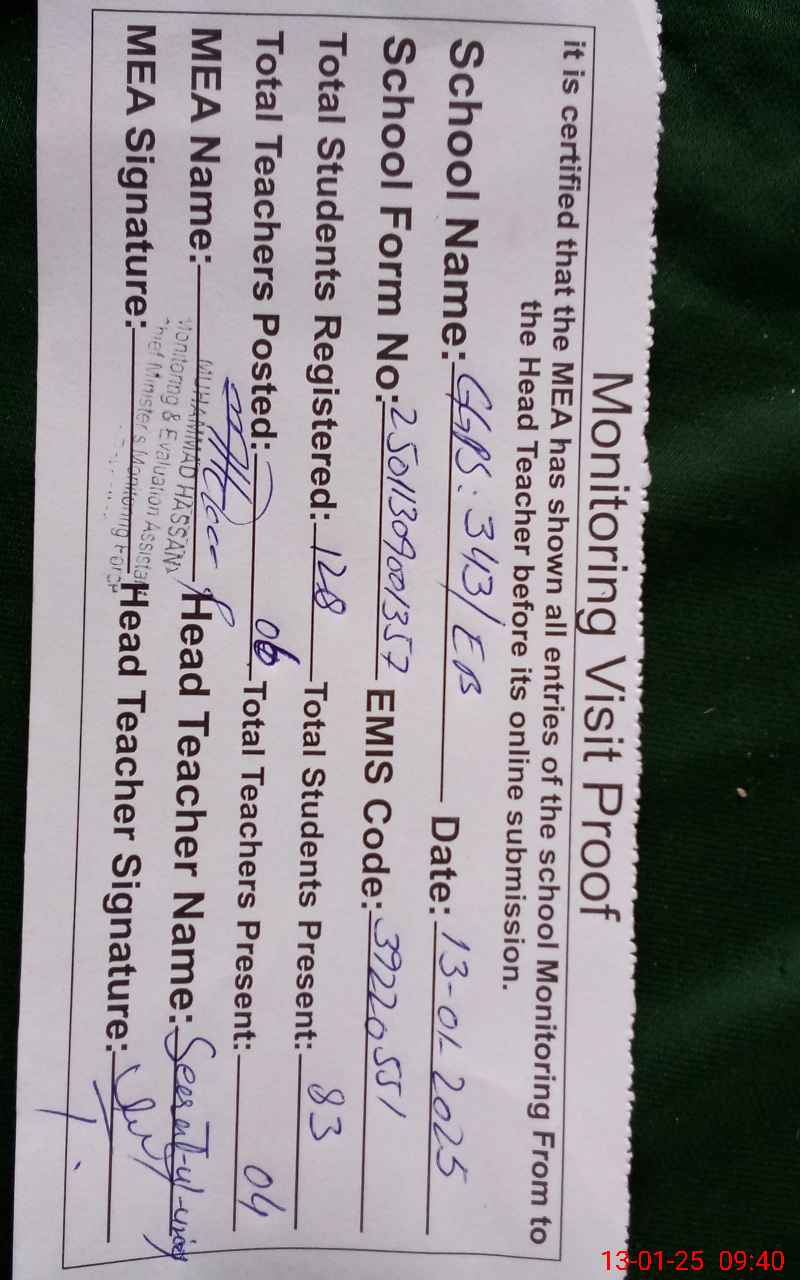 Monitoring Visit Proof
it is certified that the MEA has shown all entries of the school Monitoring From to
the Head Teacher before its online submission.
School Name: GGPS. 343/EB Date: 13-01-2025
School Form No: 25011309001357 EMIS Code: 39220551
Total Students Registered: 128 Total Students Present: 83
Total Teachers Posted: 06 Total Teachers Present: 04
MEA Name: Head Teacher Name:
MUHAMMAD HASSAN
Monitoring & Evaluation Assistant
Chief Minister's Monitoring Force
MEA Signature: Head Teacher Signature:
13-01-25 09:40